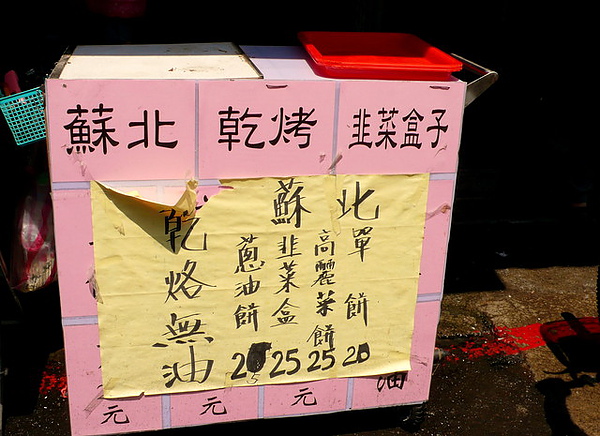 蘇北 乾烤 韭菜盒子
蘇北
單餅 20
高麗菜餅 25
韭菜盒 25
蔥油餅 25
乾烙無油
元 元 元 油